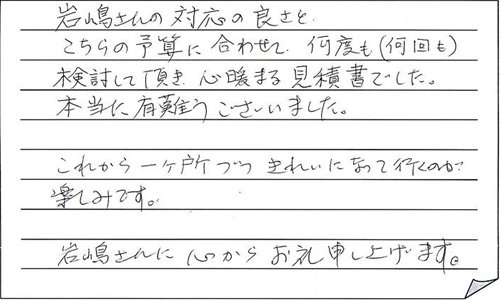 岩嶋さんの対応の良さと
こちらの予算に合わせて、何度も(何回も)
検討して頂き 心暖まる見積書でした。
本当に有難うございました。
これから一ヶ所づつ きれいになって行くのが
楽しみです。
岩嶋さんに 心から お礼申し上げます。